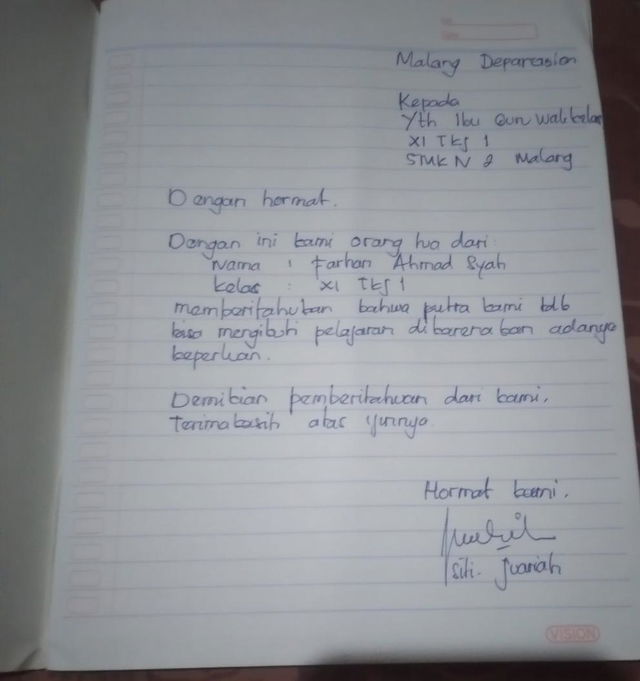 Malang Depareasion
Kepada
Yth Ibu Gun Walikelas
XI TKJ 1
SMK N 2 Malang
Dengan hormat.
Dengan ini kami orang tua dari
Nama : Farhan Ahmad Syah
kelas : XI TKJ 1
memberitahukan bahwa putra kami tdk
bisa mengikuti pelajaran dikarenakan adanya
keperluan.
Demikian pemberitahuan dari kami,
Terimakasih atas ijinnya
Hormat kami.
Siti. Juariah
VISION